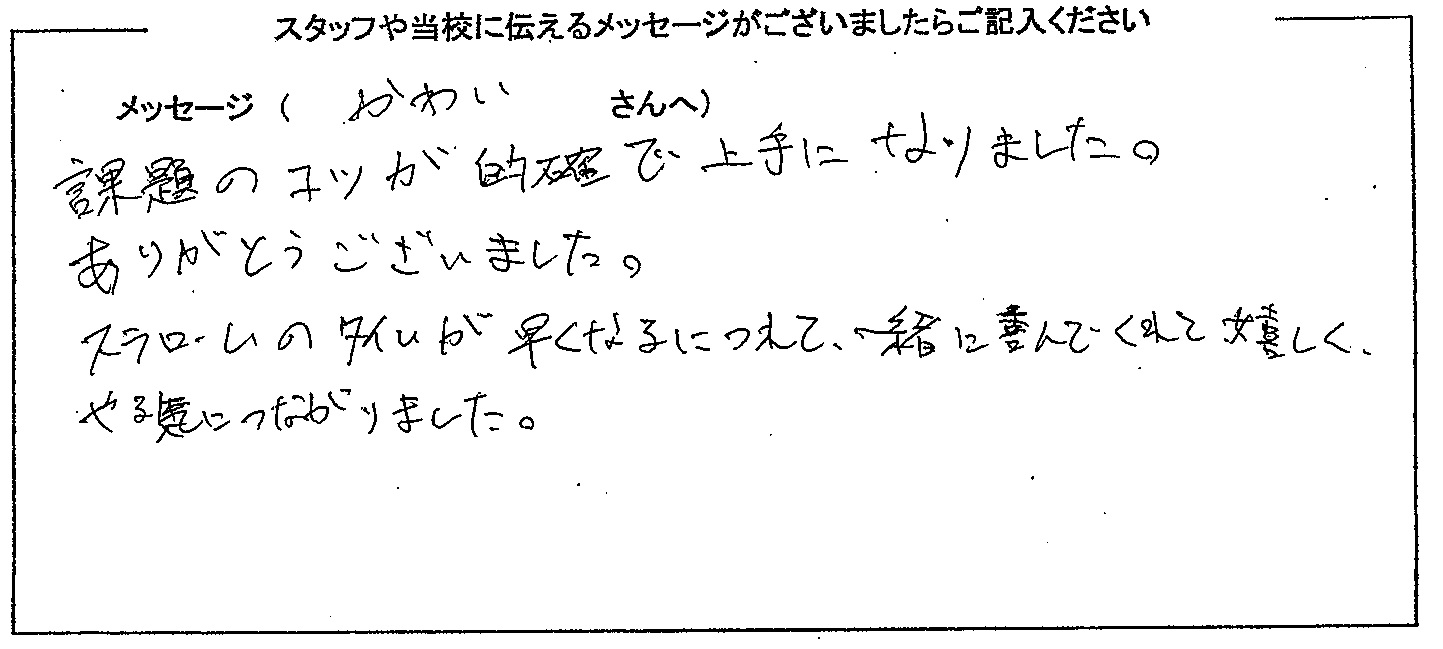 スタッフや当校に伝えるメッセージがございましたらご記入ください
メッセージ( かわい さんへ)
課題のコツが的確で上手になりました。
ありがとうございました。
スラロームのタイムが早くなるにつれて、一緒に喜んでくれて嬉しく、
やる気につながりました。